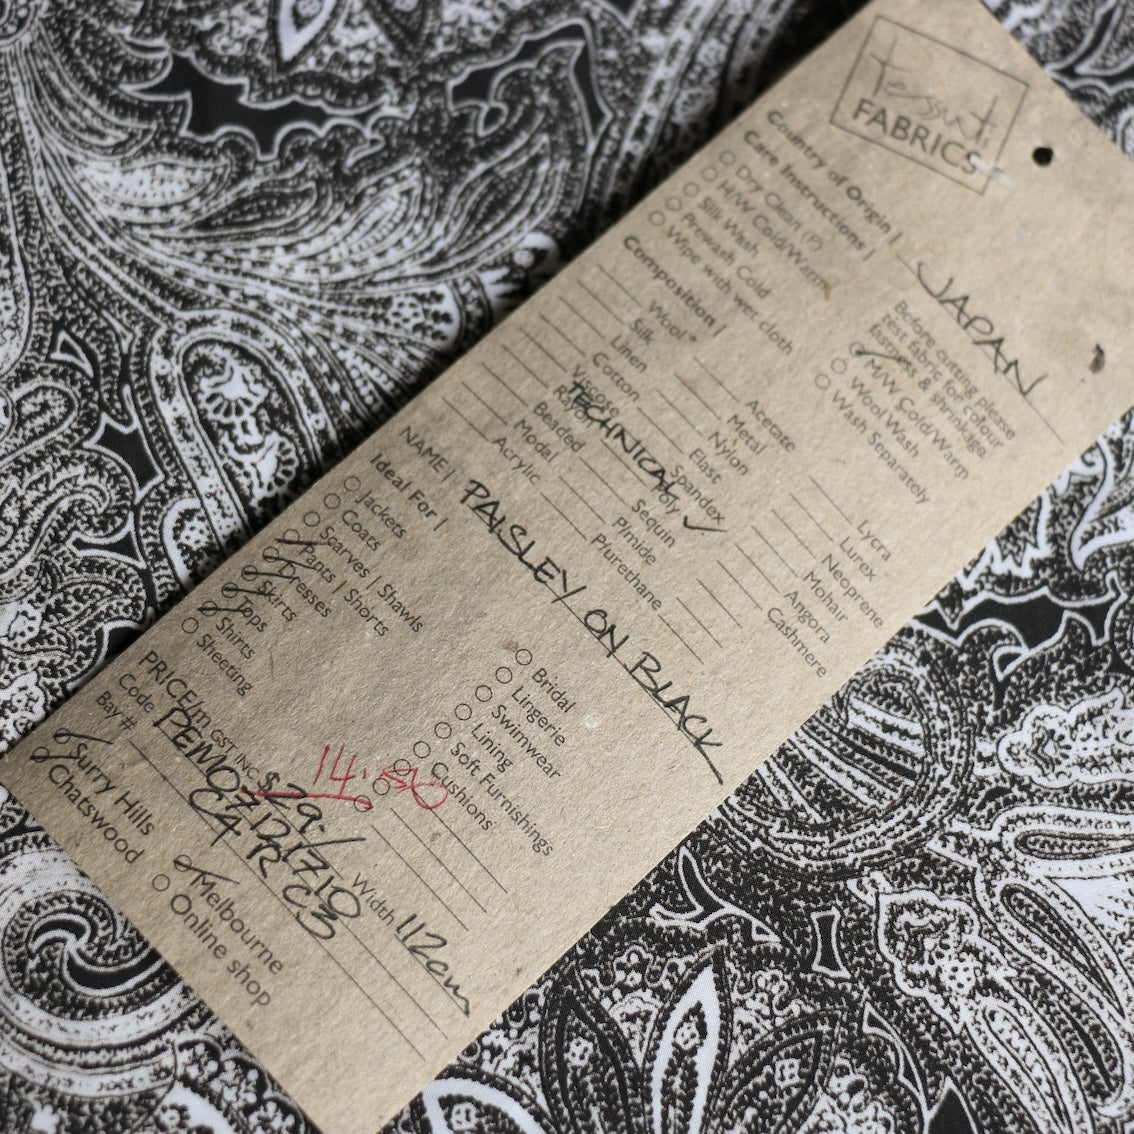 tessuti
FABRICS
Country of Origin | JAPAN
Care Instructions |
Before cutting please
test fabric for colour
fastness & shrinkage
Dry Clean (P)
H/W Cold/Warm
Silk Wash
Prewash Cold
Wipe with wet cloth
M/W Cold/Warm
Wool Wash
Wash Separately
Composition |
Wool*
Silk
Linen
Cotton
Viscose
Rayon
Beaded
Modal
Acrylic
Acetate
Metal
Nylon
Elast
Spandex
TECHNICAL Poly ✓
Sequin
P/mide
P/urethane
Lycra
Lurex
Neoprene
Mohair
Angora
Cashmere
NAME | PAISLEY ON BLACK
Ideal For |
Jackets
Coats
Scarves | Shawls
Pants | Shorts
Dresses
Skirts
Tops
Shirts
Sheeting
Bridal
Lingerie
Swimwear
Lining
Soft Furnishings
Cushions
14.50
PRICE/m GST INC $29./ Width 112cm
Code PEMO7121710
Bay # C4 R C3
Surry Hills
Chatswood
Melbourne
Online shop